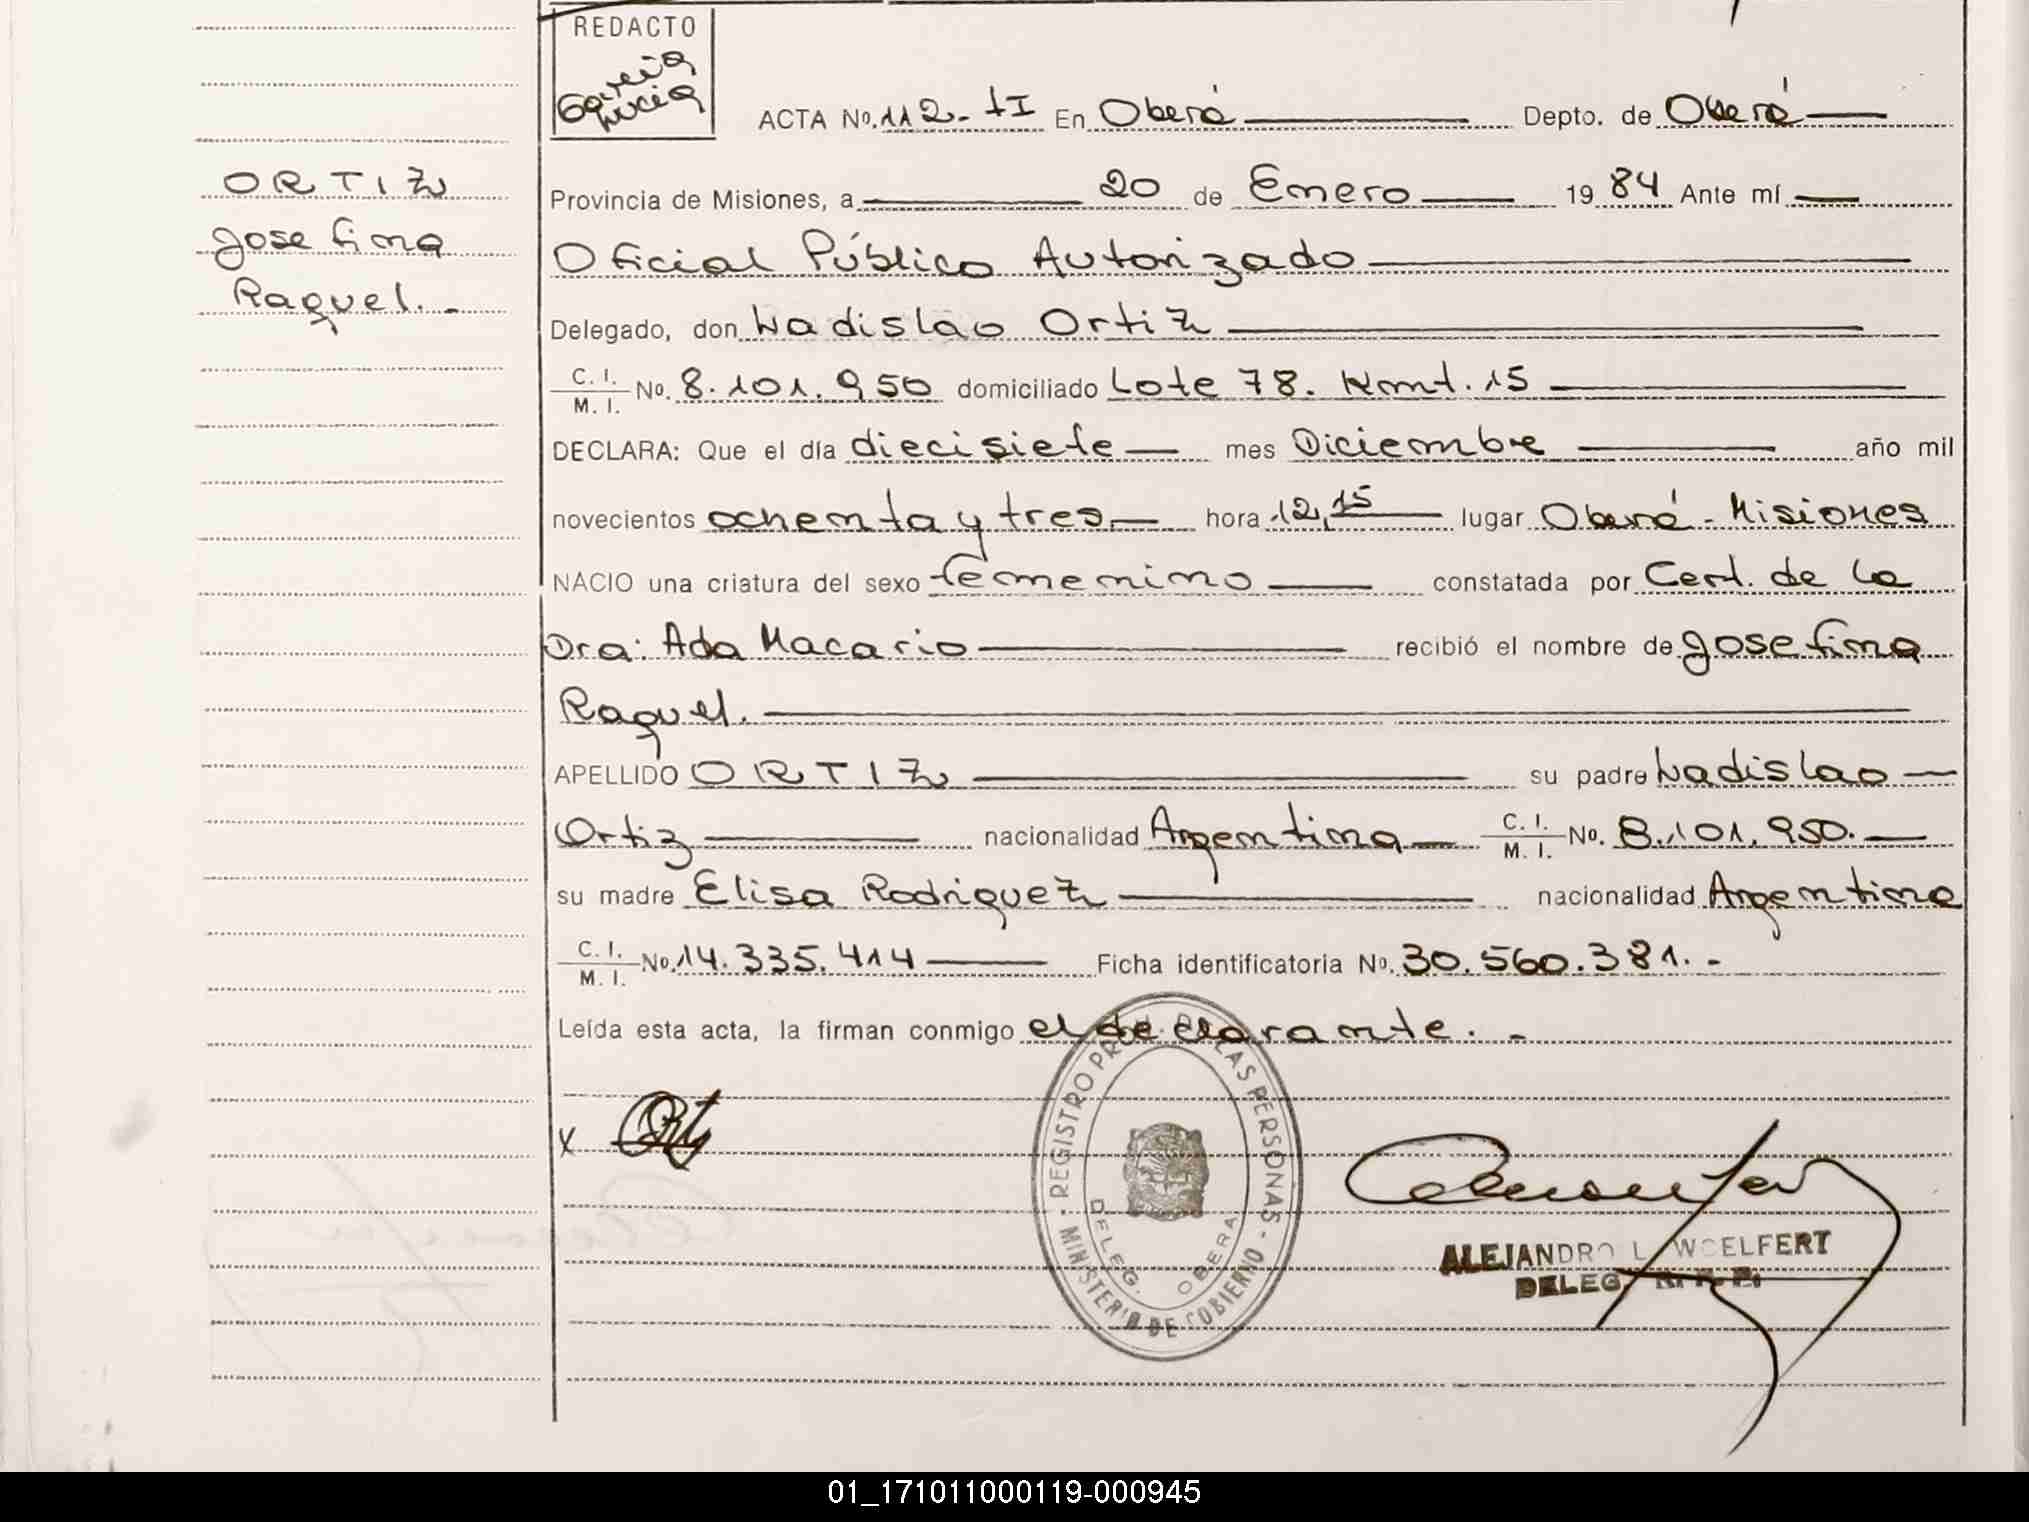 REDACTO
García
Lucía
ACTA No. 112- tI En Oberá Depto. de Oberá
ORTIZ
Josefina
Raquel.-
Provincia de Misiones, a 20 de Enero 19 84 Ante mí
Oficial Público Autorizado
Delegado, don Ladislao Ortiz
C. I. / M. I. No. 8.101.950 domiciliado Lote 78. Kmt. 15
DECLARA: Que el día diecisiete mes Diciembre año mil
novecientos ochenta y tres hora 12,15 lugar Oberá - Misiones
NACIO una criatura del sexo femenino constatada por Cert. de la
Dra: Ada Macario recibió el nombre de Josefina
Raquel.
APELLIDO ORTIZ su padre Ladislao
Ortiz nacionalidad Argentina C. I. / M. I. No. 8.101.950.
su madre Elisa Rodriguez nacionalidad Argentina
C. I. / M. I. No. 14.335.414 Ficha identificatoria No. 30.560.381.-
Leída esta acta, la firman conmigo el declarante.-
X
REGISTRO PROV. DE LAS PERSONAS - MINISTERIO DE GOBIERNO -
DELEG. OBERA
ALEJANDRO L. WOELFERT
DELEG. R. P. P.
01_171011000119-000945